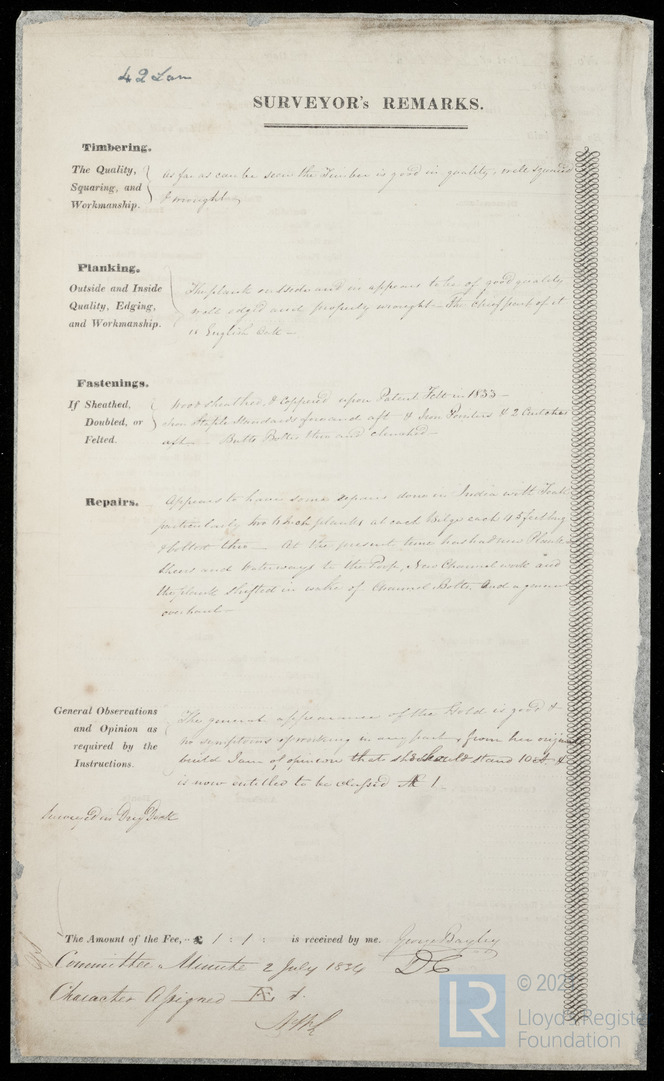 42 Lon
SURVEYOR's REMARKS.
Timbering.
The Quality, Squaring, and Workmanship.
as far as can be seen the Timber is good in quality, well squared
& wrought
Planking.
Outside and Inside Quality, Edging, and Workmanship.
The plank outside and in appears to be of good quality
well edged and properly wrought - the chief part of it
is English Oak -
Fastenings.
If Sheathed, Doubled, or Felted.
Wood sheathed, & Coppered upon Patent Felt in 1833 -
Iron Staple Standards forward aft & Iron Pointers & 2
Butts Bolted thro and clenched -
Repairs.
Appears to have some repairs done in India with Teak
particularly two 6 Inch planks at each Bilge each 45 feet long
& bolted thro - At the present time has had new Plank
sheer and Waterways to the Poop, New Channel work and
the plank shifted in wake of Channel Bolts, and a general
overhaul -
General Observations and Opinion as required by the Instructions.
The general appearance of the Hold is good &
no symptoms of working in any part, from her original
build I am of opinion that she should stand 10 A &
is now entitled to be classed A 1
Surveyed in Dry Dock
The Amount of the Fee, - £ 1 : 1 : is received by me. George Bayley
Committee Minute 2 July 1834
Character Assigned Æ 1.
© 202
LR
Lloyd's Register
Foundation